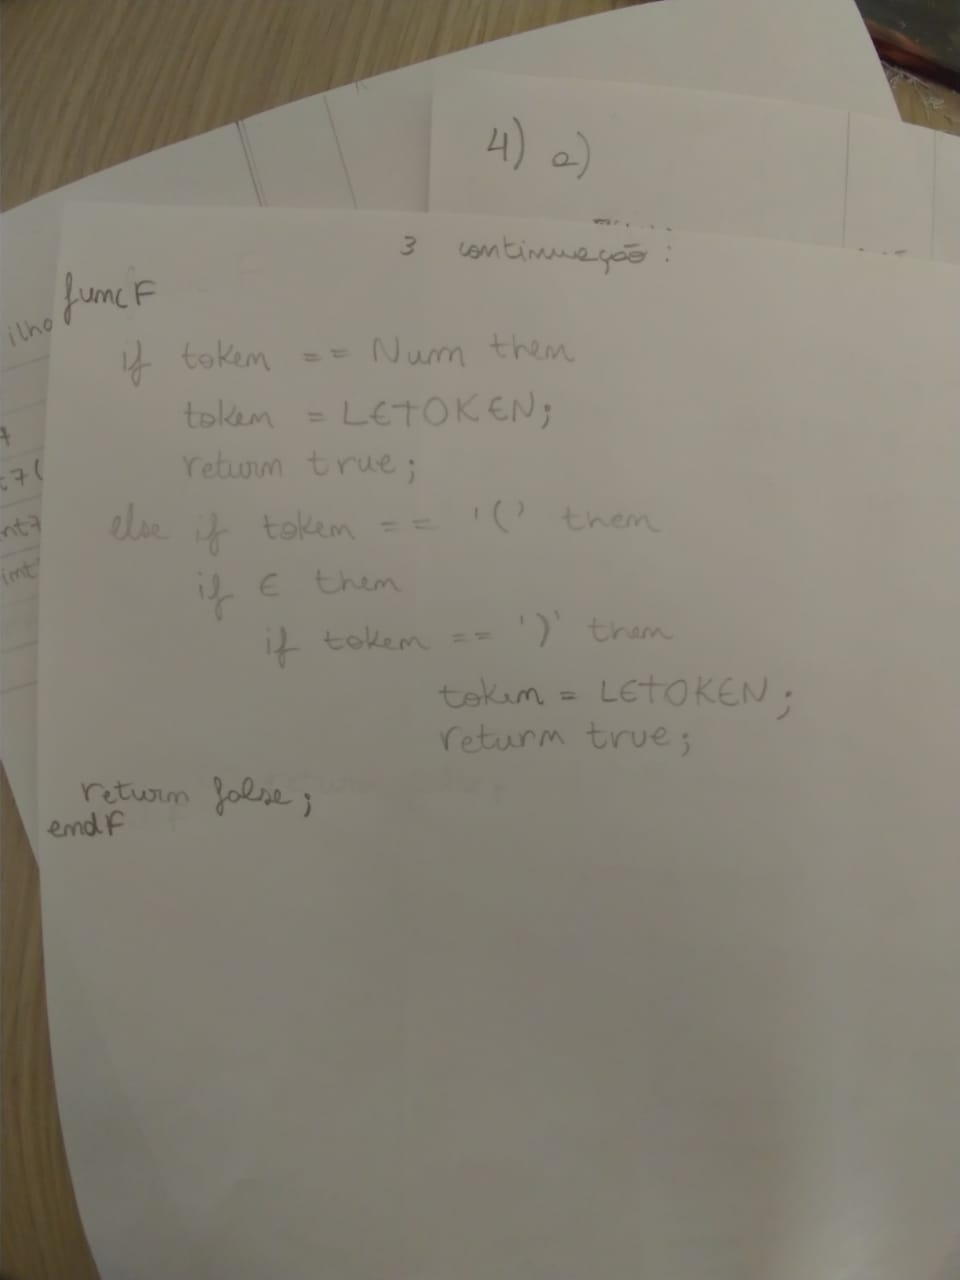 4) a)
3 continuação:
func F
if token == Num then
token = LETOKEN;
return true;
else if token == '(' then
if E then
if token == ')' then
token = LETOKEN;
return true;
return false;
end F
ilho